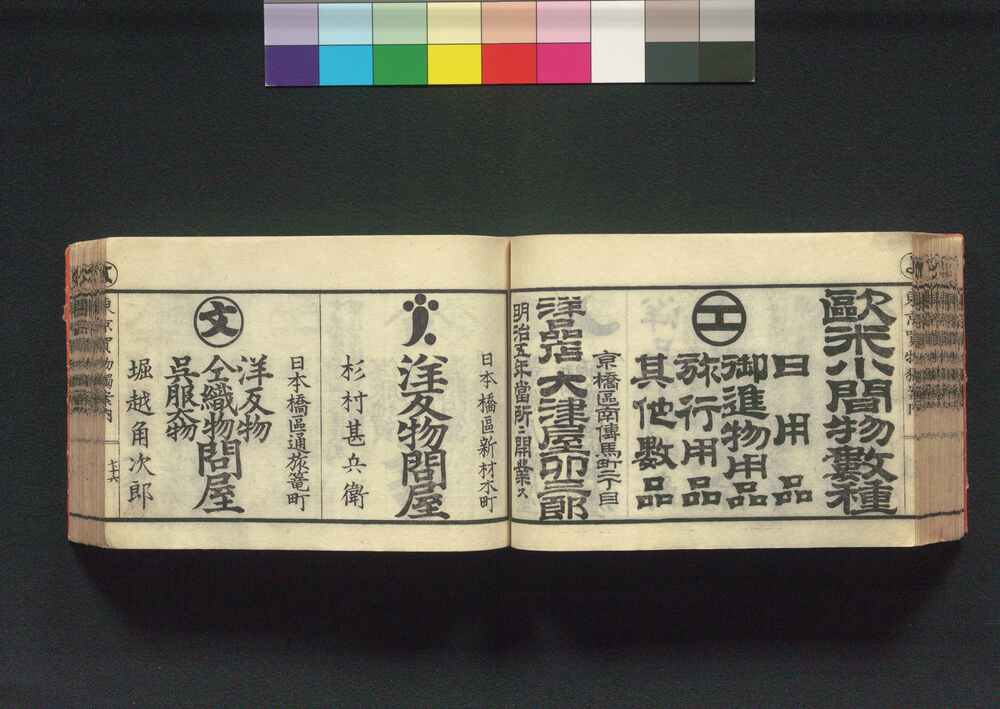 歐米小間物數種
工
日用品
御進物用品
旅行用品
其他數品
京橋區南傳馬町二丁目
洋品店 大津屋卯三郎
明治五年當所ニ開業ス
日本橋區新材木町
洋反物問屋
杉村甚兵衛
日本橋區通旅篭町
文
洋反物
仝織物問屋
呉服太物
堀越角次郎
東京買物獨案内
七十六